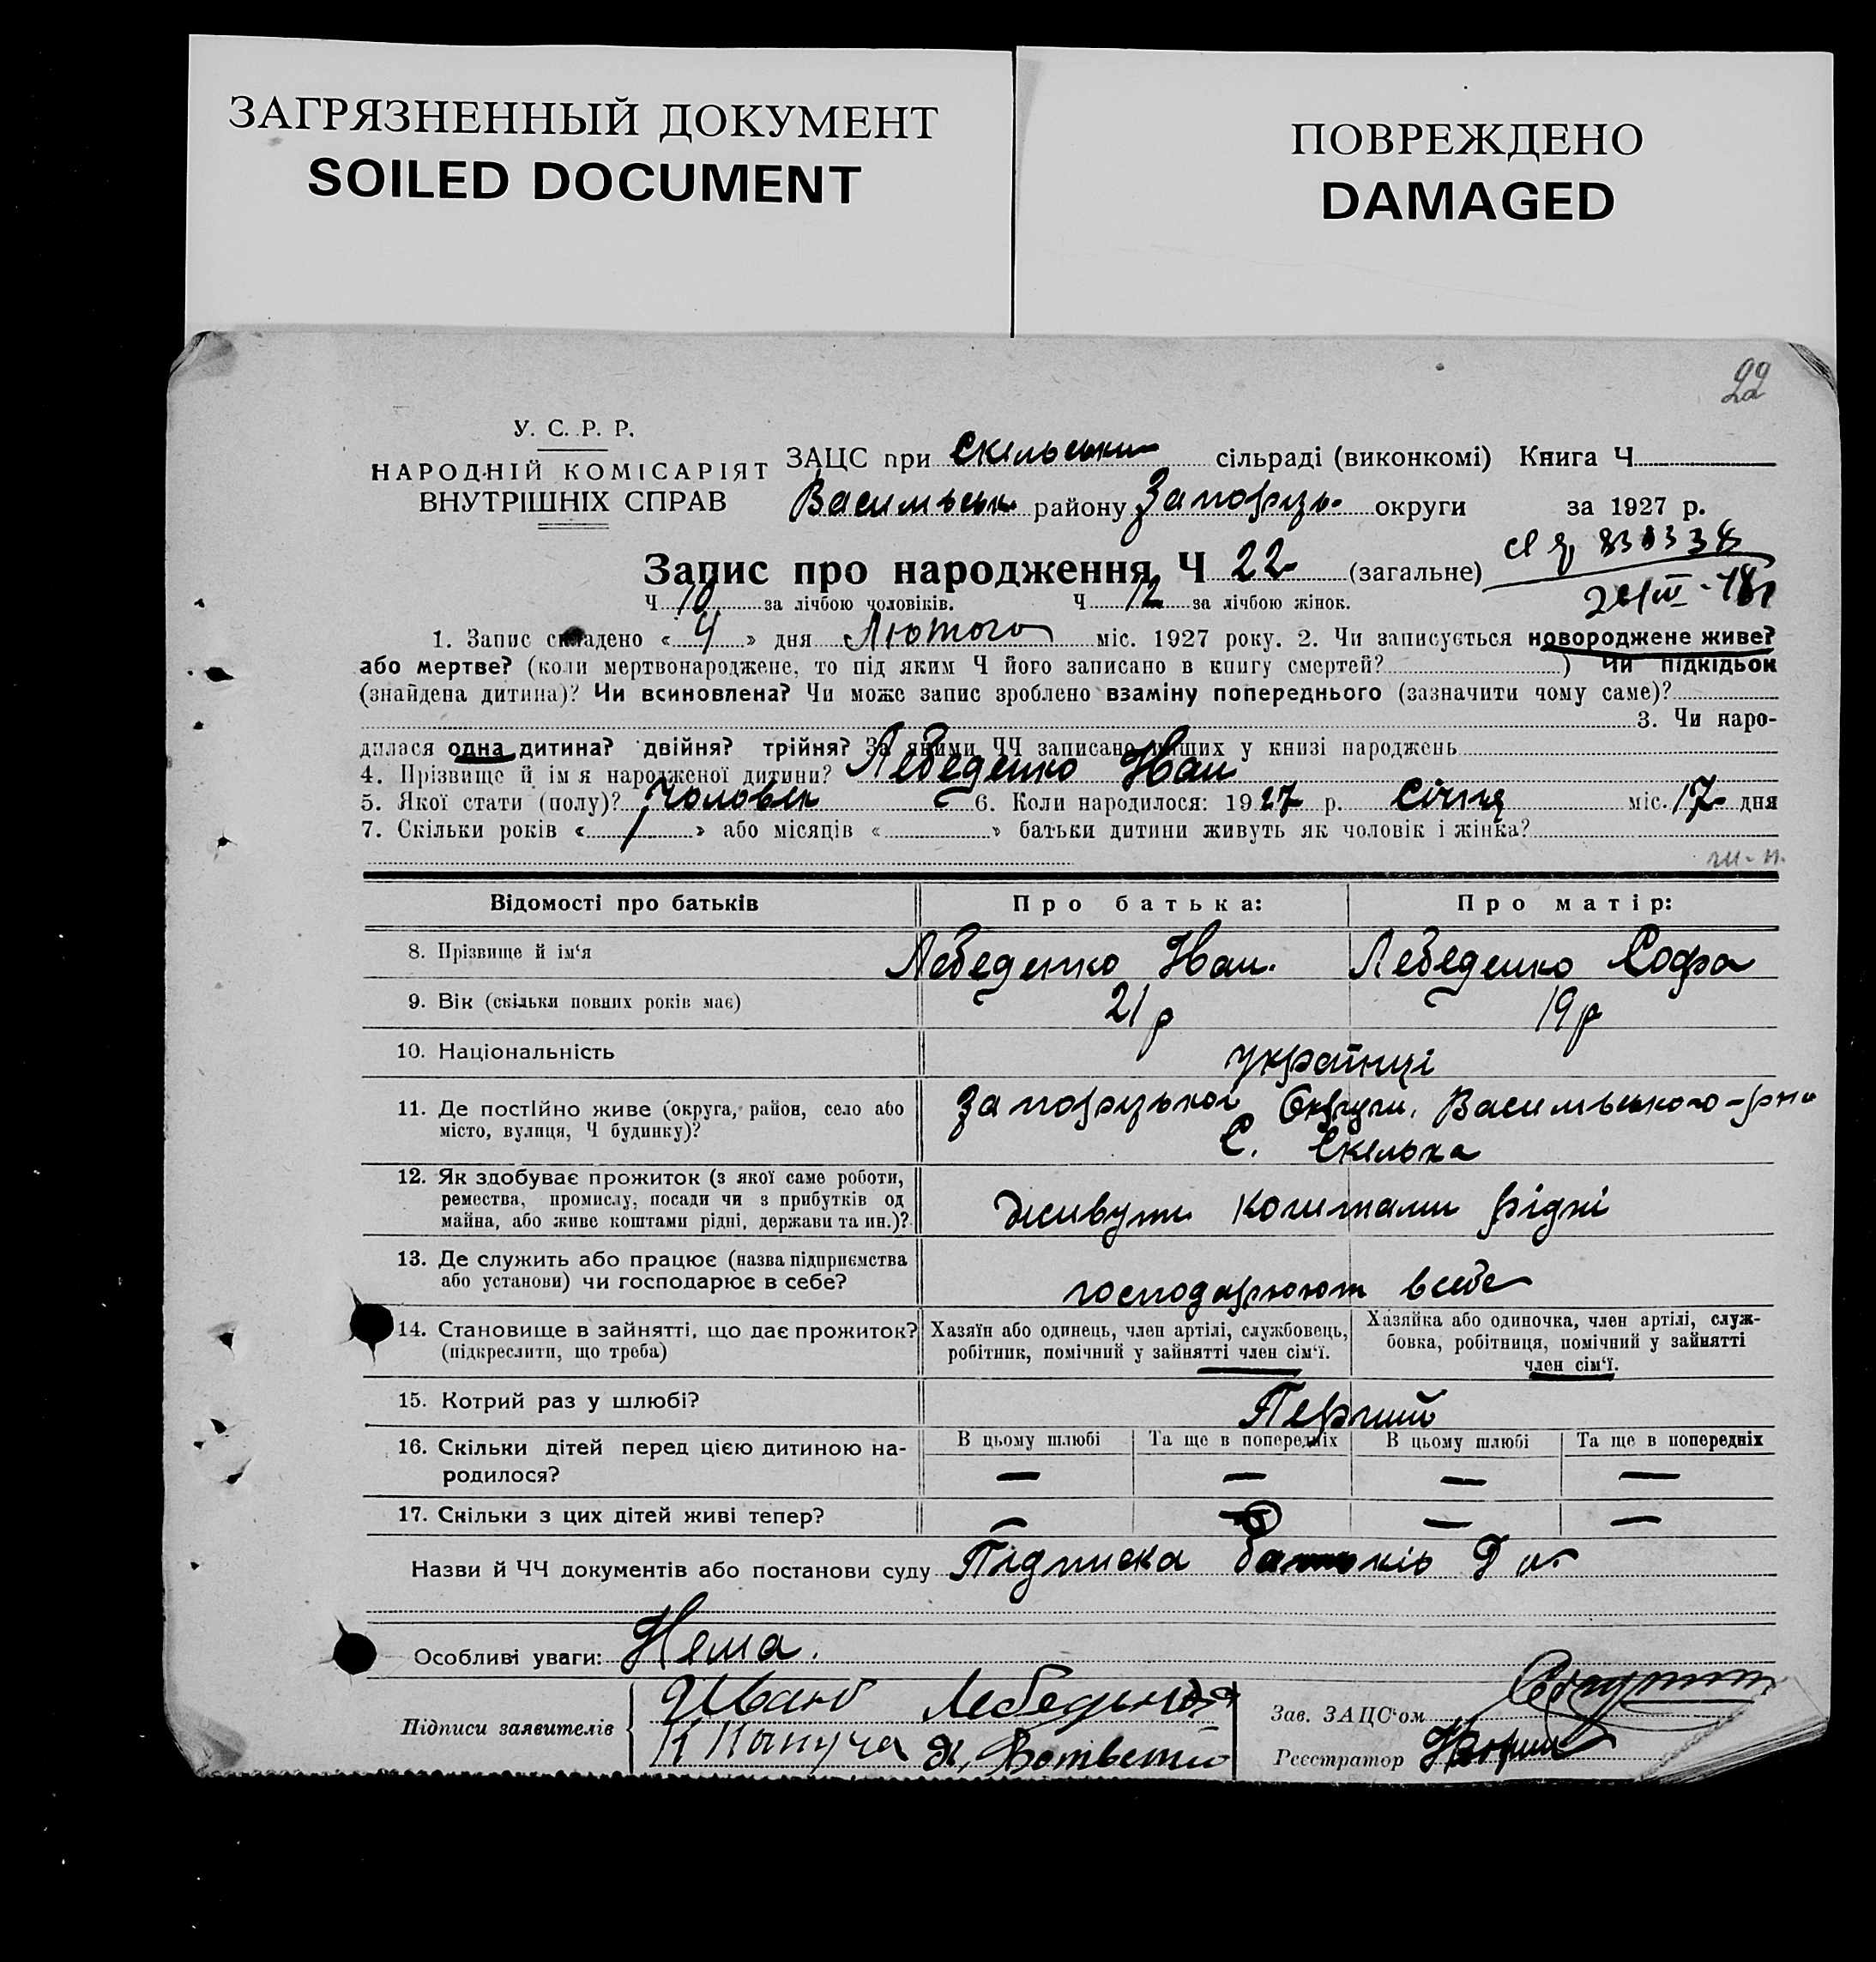 ЗАГРЯЗНЕННЫЙ ДОКУМЕНТ
SOILED DOCUMENT
ПОВРЕЖДЕНО
DAMAGED
22
У. С. Р. Р.
НАРОДНІЙ КОМІСАРІЯТ
ВНУТРІШНІХ СПРАВ
ЗАЦС при Скільськи сільраді (виконкомі) Книга Ч.
Васильськ району Запорізь. округи за 1927 р.
Запис про народження Ч 22 (загальне)
Ч 10 за лічбою чоловіків. Ч 12 за лічбою жінок.
1. Запис складено « 4 » дня Лютого міс. 1927 року. 2. Чи записується новороджене живе?
або мертве? (коли мертвонароджене, то під яким Ч його записано в книгу смертей? ) Чи підкідьок
(знайдена дитина)? Чи всиновлена? Чи може запис зроблено взаміну попереднього (зазначити чому саме)?
3. Чи наро-
дилася одна дитина? двійня? трійня? За якими ЧЧ записано інших у книзі народжень
4. Прізвище й ім'я народженої дитини? Лебеденко Іван
5. Якої стати (полу)? Чоловік 6. Коли народилося: 1927 р. Січня міс. 17 дня
7. Скільки років « 1 » або місяців « » батьки дитини живуть як чоловік і жінка?
Відомості про батьків Про батька: Про матір:
8. Прізвище й ім'я Лебеденко Іван. Лебеденко Софа
9. Вік (скільки повних років має) 21 р 19 р
10. Національність українці
11. Де постійно живе (округа, район, село або
місто, вулиця, Ч будинку)?
Запорізької Округи, Васильського р-ну
С. Скелька
12. Як здобуває прожиток (з якої саме роботи,
ремества, промислу, посади чи з прибутків од
майна, або живе коштами рідні, держави та ин.)?
живуть коштами рідні
13. Де служить або працює (назва підприємства
або установи) чи господарює в себе?
господарюют всебе
14. Становище в зайнятті, що дає прожиток?
(підкреслити, що треба)
Хазяїн або одинець, член артілі, службовець,
робітник, помічний у зайнятті член сім'ї.
Хазяйка або одиночка, член артілі, служ-
бовка, робітниця, помічний у зайнятті
член сім'ї.
15. Котрий раз у шлюбі? Перший
16. Скільки дітей перед цією дитиною на-
родилося?
В цьому шлюбі Та ще в попередніх В цьому шлюбі Та ще в попередніх
— — — —
17. Скільки з цих дітей живі тепер? — — — —
Назви й ЧЧ документів або постанови суду Підписка батьків
Особливі уваги: Нема.
Підписи заявителів
Иванъ
Зав. ЗАЦС'ом
Реєстратор